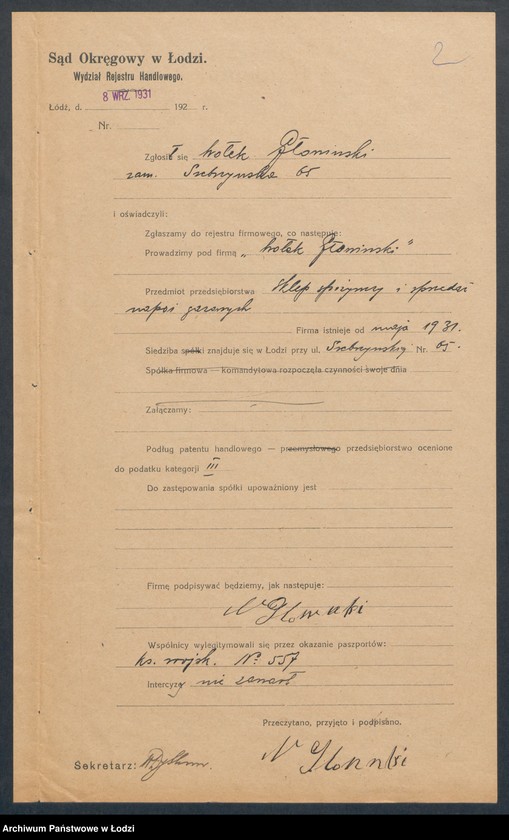 2
Sąd Okręgowy w Łodzi.
Wydział Rejestru Handlowego.
8 WRZ. 1931
Łódź, d. 192 r.
Nr.
Zgosił się Wołek
zam. Srebrzyńska 65
i oświadczyli:
Zgłaszamy do rejestru firmowego, co następuje:
Prowadzimy pod firmą „Wołek
Przedmiot przedsiębiorstwa Sklep spożywczy i sprzedaż
napoi gazowych
Firma istnieje od maja 1931.
Siedziba spółki znajduje się w Łodzi przy ul. Srebrzyńskiej Nr. 65.
Spółka firmowa — komandytowa rozpoczęła czynności swoje dnia
Załączamy:
Podług patentu handlowego — przemysłowego przedsiębiorstwo ocenione
do podatku kategorji III
Do zastępowania spółki upoważniony jest
Firmę podpisywać będziemy, jak następuje:
Wspólnicy wylegitymowali się przez okazanie paszportów:
ks. wojsk. № 557
Intercyzy nie zawarł
Przeczytano, przyjęto i podpisano.
Sekretarz:
Archiwum Państwowe w Łodzi